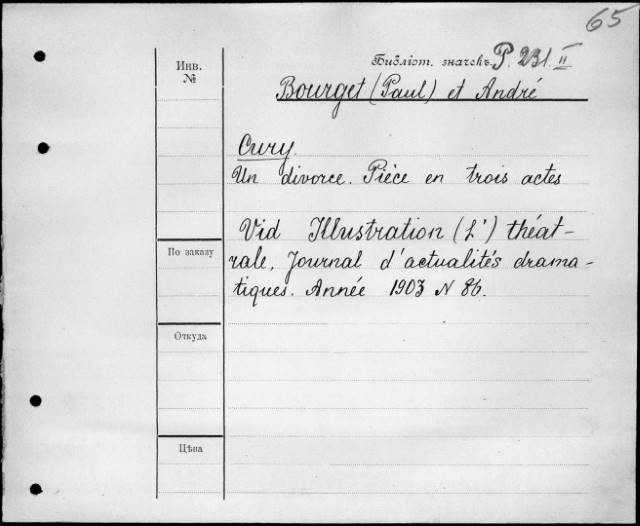 65
Инв.
№
Библіот. значекъ P. 231 II
Bourget (Paul) et André
Cury.
Un divorce. Pièce en trois actes
Vid Illustration (L') théat-
rale. Journal d'actualités drama-
tiques. Année 1903 N 86.
По заказу
Откуда
Цѣна